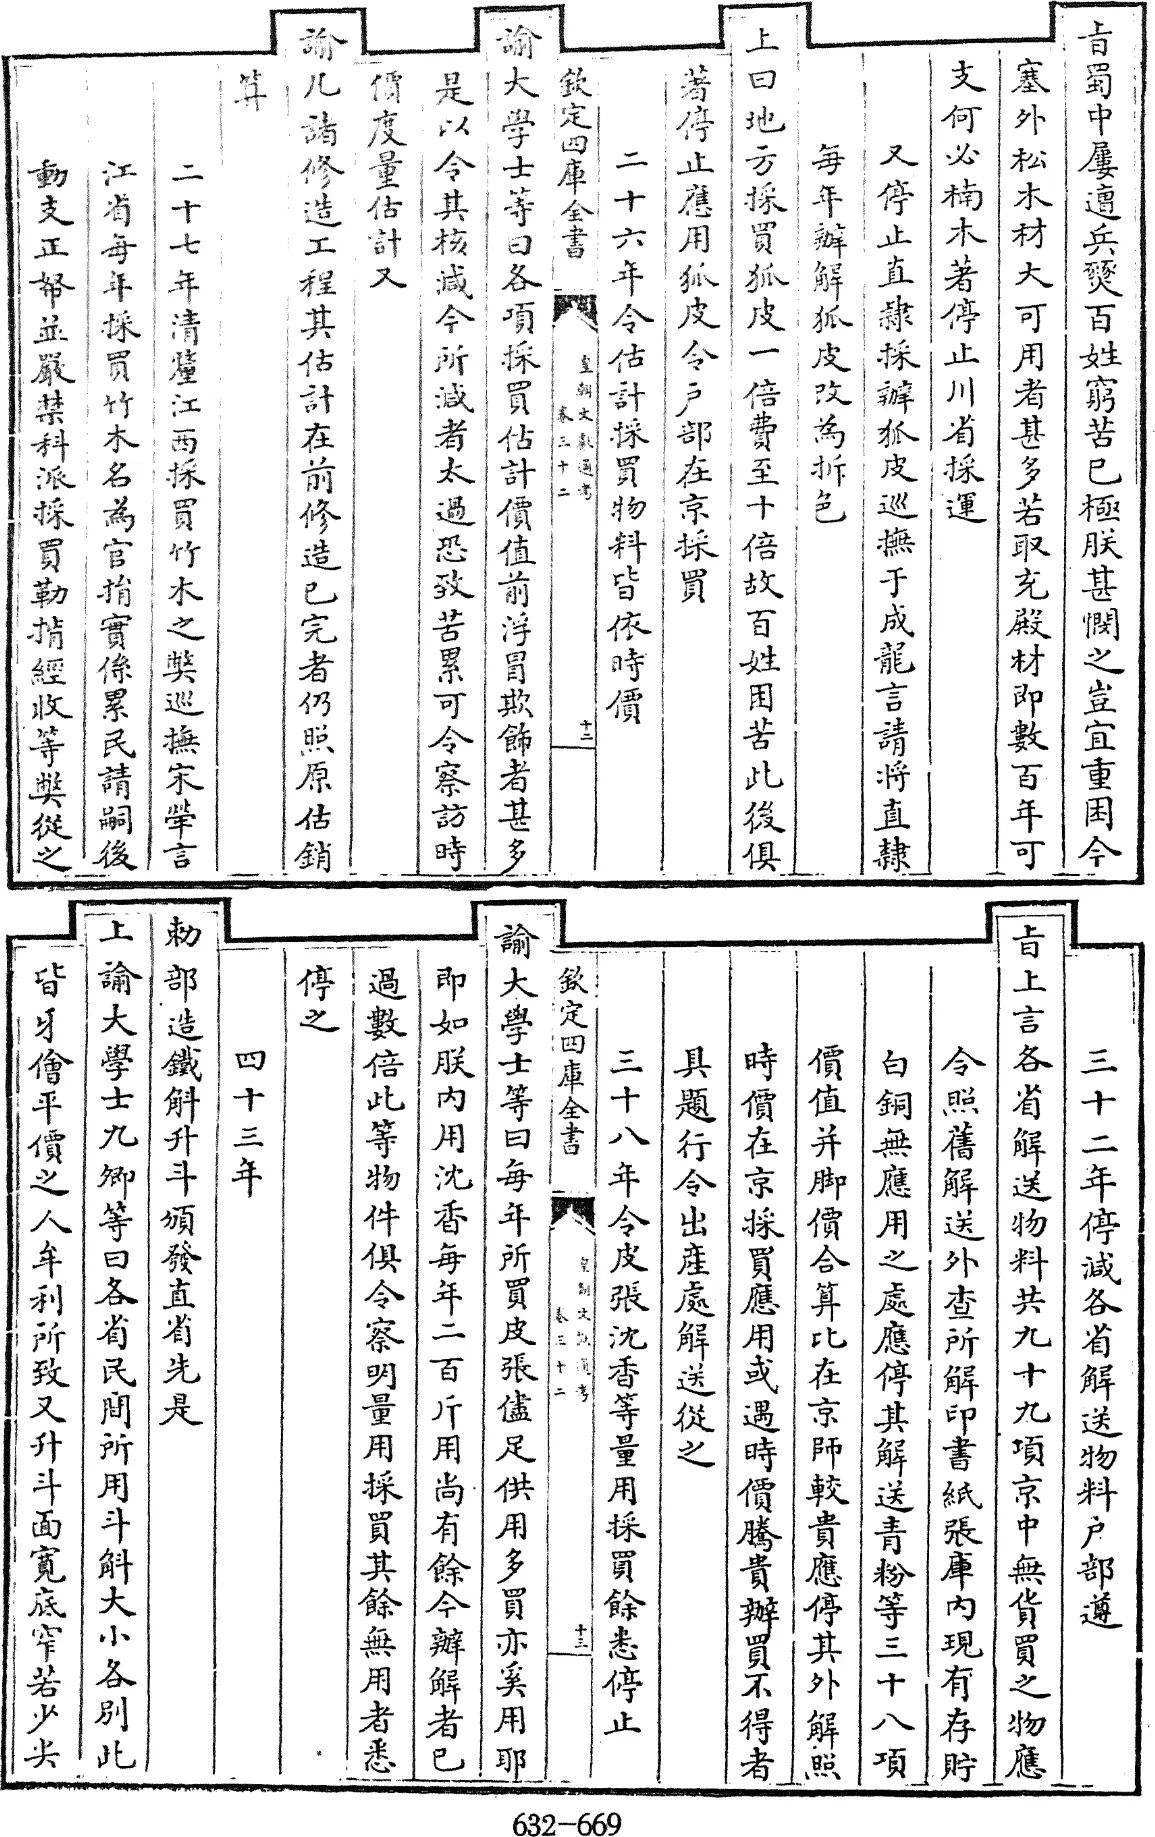 旨蜀中屢遭兵燹百姓窮苦已極朕甚憫之豈宜重困今
塞外松木材大可用者甚多若取充殿材即數百年可
支何必楠木著停止川省採運
又停止直隷採辦狐皮巡撫于成龍言請將直隷
每年辦解狐皮改為折色
上曰地方採買狐皮一倍費至十倍故百姓困苦此後俱
著停止應用狐皮令户部在京採買
二十六年令估計採買物料皆依時價
欽定四庫全書
皇朝文獻通考
卷三十二
十二
諭大學士等曰各項採買估計價值前浮冒欺飾者甚多
是以令其核減今所減者太過恐致苦累可令察訪時
價度量估計又
諭凡諸修造工程其估計在前修造已完者仍照原估銷
算
二十七年清釐江西採買竹木之獘巡撫宋犖言
江省每年採買竹木名為官捐實係累民請嗣後
動支正帑並嚴禁科派採買勒掯經收等獘從之
三十二年停減各省解送物料户部遵
旨上言各省解送物料共九十九項京中無貨買之物應
令照舊解送外查所解印書紙張庫内現有存貯
白銅無應用之處應停其解送青粉等三十八項
價值并脚價合算比在京師較貴應停其外解照
時價在京採買應用或遇時價騰貴辦買不得者
具題行令出產處解送從之
三十八年令皮張沈香等量用採買餘悉停止
欽定四庫全書
皇朝文獻通考
卷三十二
十三
諭大學士等曰每年所買皮張儘足供用多買亦奚用耶
即如朕内用沈香每年二百斤用尚有餘今辦解者已
過數倍此等物件俱令察明量用採買其餘無用者悉
停之
四十三年
勅部造鐵斛升斗頒發直省先是
上諭大學士九卿等曰各省民間所用斗斛大小各別此
皆牙儈平價之人牟利所致又升斗面寛底窄若少尖
632-669